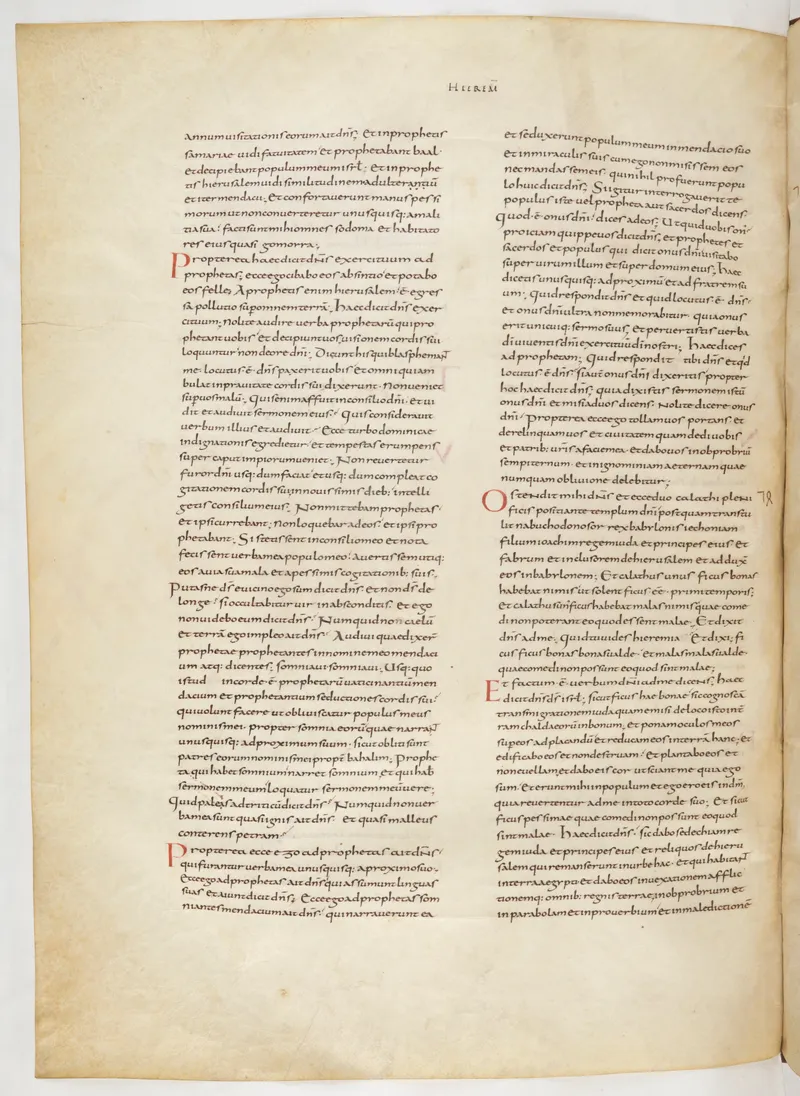 HIEREM̅
annum uisitationis eorum ait dn̅s; Et in prophetis
samariae uidi fatuitatem et prophetabant baal
et decipiebant populum meum isrl̅; et in prophe
tis hierusalem uidi similitudinem adulterantiū
et iter mendacii; et confortauerunt manus pessi
morum ut non conuerteretur unusquisq; a mali
tia sua; facti sunt mihi omnes sodoma et habitato
res eius quasi gomorra;
Propterea haec dicit dn̅s exercituum ad
prophetas; ecce ego cibabo eos absintio et potabo
eos felle; A prophetis enim hierusalem ē egres
sa pollutio sup omnem terrā; Haec dicit dn̅s exer
cituum; Nolite audire uerba prophetarū qui pro
phetant uobis et decipiunt uos uisionem cordis sui
loquuntur non de ore dn̅i; Dicunt his qui blasphemant
me locutus ē dn̅s pax erit uobis et omni qui am
bulat in prauitate cordis sui dixerunt. Non ueniet
sup uos malū; Quis enim affuit in consilio dn̅i. et ui
dit et audiuit sermonem eius; Quis considerauit
uerbum illius et audiuit; Ecce turbo dominicae
indignationis egredietur et tempestas erumpens
super caput impiorum ueniet; Non reuertetur
furor dn̅i usq; dum faciat et usq; dum compleat co
gitationem cordis sui; in nouissimis dieb; intelli
getis consilium eius; Non mittebam prophetas
et ipsi currebant; non loquebar ad eos et ipsi pro
phetabant; Si stetissent in consilio meo et nota
fecissent uerba mea populo meo; auertissem utiq;
eos a uia sua mala et a pessimis cogitationib; suis;
Putasne ds̅ e uicino ego sum dicit dn̅s et non ds̅ de
longe; si occultabitur uir in absconditis et ego
non uidebo eum dicit dn̅s; Numquid non caelū
et terrā ego impleo ait dn̅s; Audiui quae dixer̅
prophetae prophetantes in nomine meo mendaci
um atq; dicentes; somniaui somniaui; Usq; quo
istud in corde ē prophetarū uaticinantiū men
dacium et prophetantium seductiones cordis sui;
qui uolunt facere ut obliuiscatur populus meus
nominis mei. propter somnia eorū quae narrant
unusquisq; ad proximum suum. sicut obliti sunt
patres eorum nominis mei propt̅ bahalim; Prophe
ta qui habet somnium narret somnium et qui habet
sermonem meum loquatur sermonem meū uere;
Quid paleis ad triticū dicit dn̅s; Numquid non uer
ba mea sunt quasi ignis ait dn̅s. et quasi malleus
conterens petram;
Propterea ecce ego ad prophetas ait dn̅s;
qui furantur uerba mea unusquisq; a proximo suo;
Ecce ego ad prophetas ait dn̅s qui assumunt linguas
suas et aiunt dicit dn̅s; Ecce ego ad prophetas som
niantes mendacium ait dn̅s; qui narrauerunt ea
et seduxerunt populum meum in mendacio suo
et in miraculis suis cum ego non misissem eos
nec mandassem eis. qui nihil profuerunt popu
lo huic dicit dn̅s; Si igitur interrogauerit te
populus iste uel propheta aut sacerdos dicens.
Quod ē onus dn̅i; dices ad eos; Ut quid uobis on̅
proiciam quippe uos dicit dn̅s; et prophetes et
sacerdos et populus qui dicit onus dn̅i uisitabo
super uirum illum et super domum eius; Haec
dicetis unusquisq; ad proximū et ad fratrem su
um; Quid respondit dn̅s et quid locutus ē dn̅s;
et onus dn̅i ultra non memorabitur quia onus
erit unicuiq; sermo suus; et peruertistis uerba
di̅ uiuentis dn̅i exercituū di̅ nostri; Haec dices
ad prophetam; Quid respondit tibi dn̅s et qd̅
locutus ē dn̅s; si aut̅ onus dn̅s dixeritis propter
hoc haec dicit dn̅s; quia dixistis sermonem istū
onus dn̅i et misi ad uos dicens. Nolite dicere onus
dn̅i. Propterea ecce ego tollam uos portans et
derelinquam uos et ciuitatem quam dedi uobis
et patrib; uris̅ a facie mea et dabo uos in obprobriū
sempiternum et in ignominiam aeternam quae
numquam obliuione delebitur;
Ostendit mihi dn̅s et ecce duo calathi pleni
ficis positi ante templum dn̅i postquam transtu
lit nabuchodonosor rex babylonis iechoniam
filium ioachim regem iuda et principes eius et
fabrum et inclusorem de hierusalem et adduxit
eos in babylonem; Et calathus unus ficus bonas
habebat nimis ut solent ficus eē primi temporis;
et calathus un̅ ficus habebat malas nimis quae come
di non poterant eo quod essent malae; Et dixit
dn̅s ad me; Quid tu uides hieremia. Et dixi; fi
cus ficus bonas bonas ualde. et malas malas ualde
quae comedi non possunt eo quod sint malae;
Et factum ē uerbum dn̅i ad me dicens; haec
dicit dn̅s ds̅ isrl̅; sicut ficus hae bonae sic cognoscā
transmigrationem iuda quam emisi de loco isto in ter
ram chaldaeorū in bonum; et ponam oculos meos
sup eos ad placandū et reducam eos in terrā hanc; et
edificabo eos et non destruam; et plantabo eos et
non euellam; et dabo eis cor ut sciant me quia ego
sum; et erunt mihi in populum et ego ero eis in dm̅;
quia reuertentur ad me in toto corde suo; Et sicut
ficus pessimae quae comedi non possunt eo quod
sint malae. Haec dicit dn̅s. sic dabo sedechiam re
gem iuda et principes eius et reliquos de hieru
salem qui remanserunt in urbe hac. et qui habitant
in terra aegypti. et dabo eos in uexationem afflic
tionemq; omnib; regnis terrae; in obprobrium et
in parabolam et in prouerbium et in maledictionē